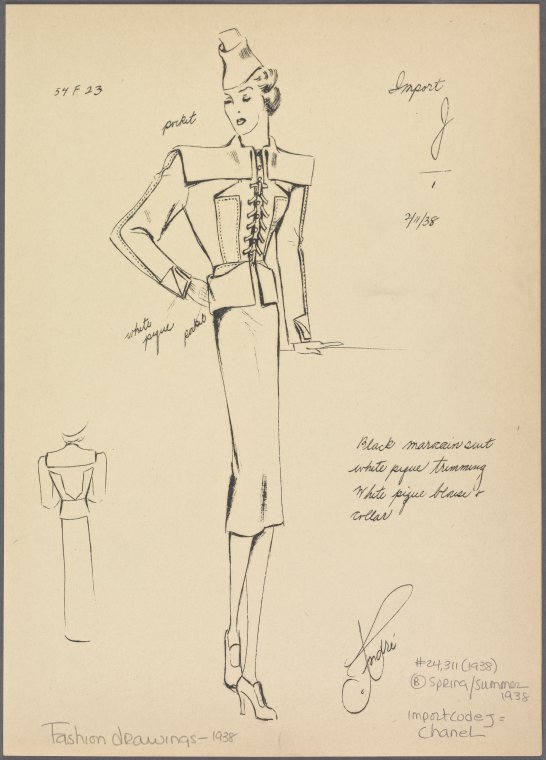 54 F 23
Import
J
1
pocket
2/11/38
white
pique
pocket
Black marocain suit
white pique trimming
White pique blouse &
collar
André
#24,311 (1938)
B Spring/Summer
1938
import code J =
Chanel
Fashion drawings - 1938